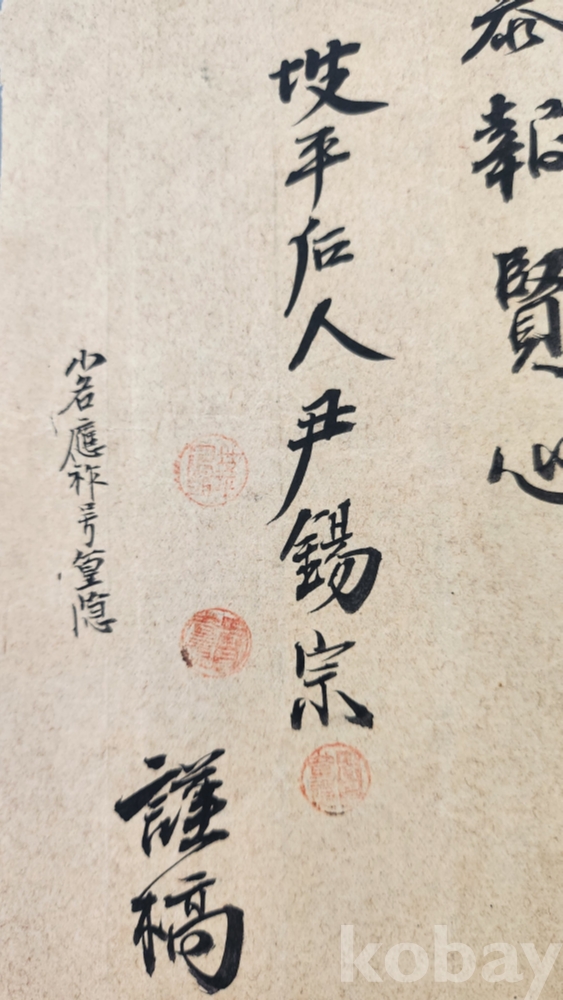 報賢心
坡平后人尹錫宗
謹稿
小名應祚号篁隠
kobay